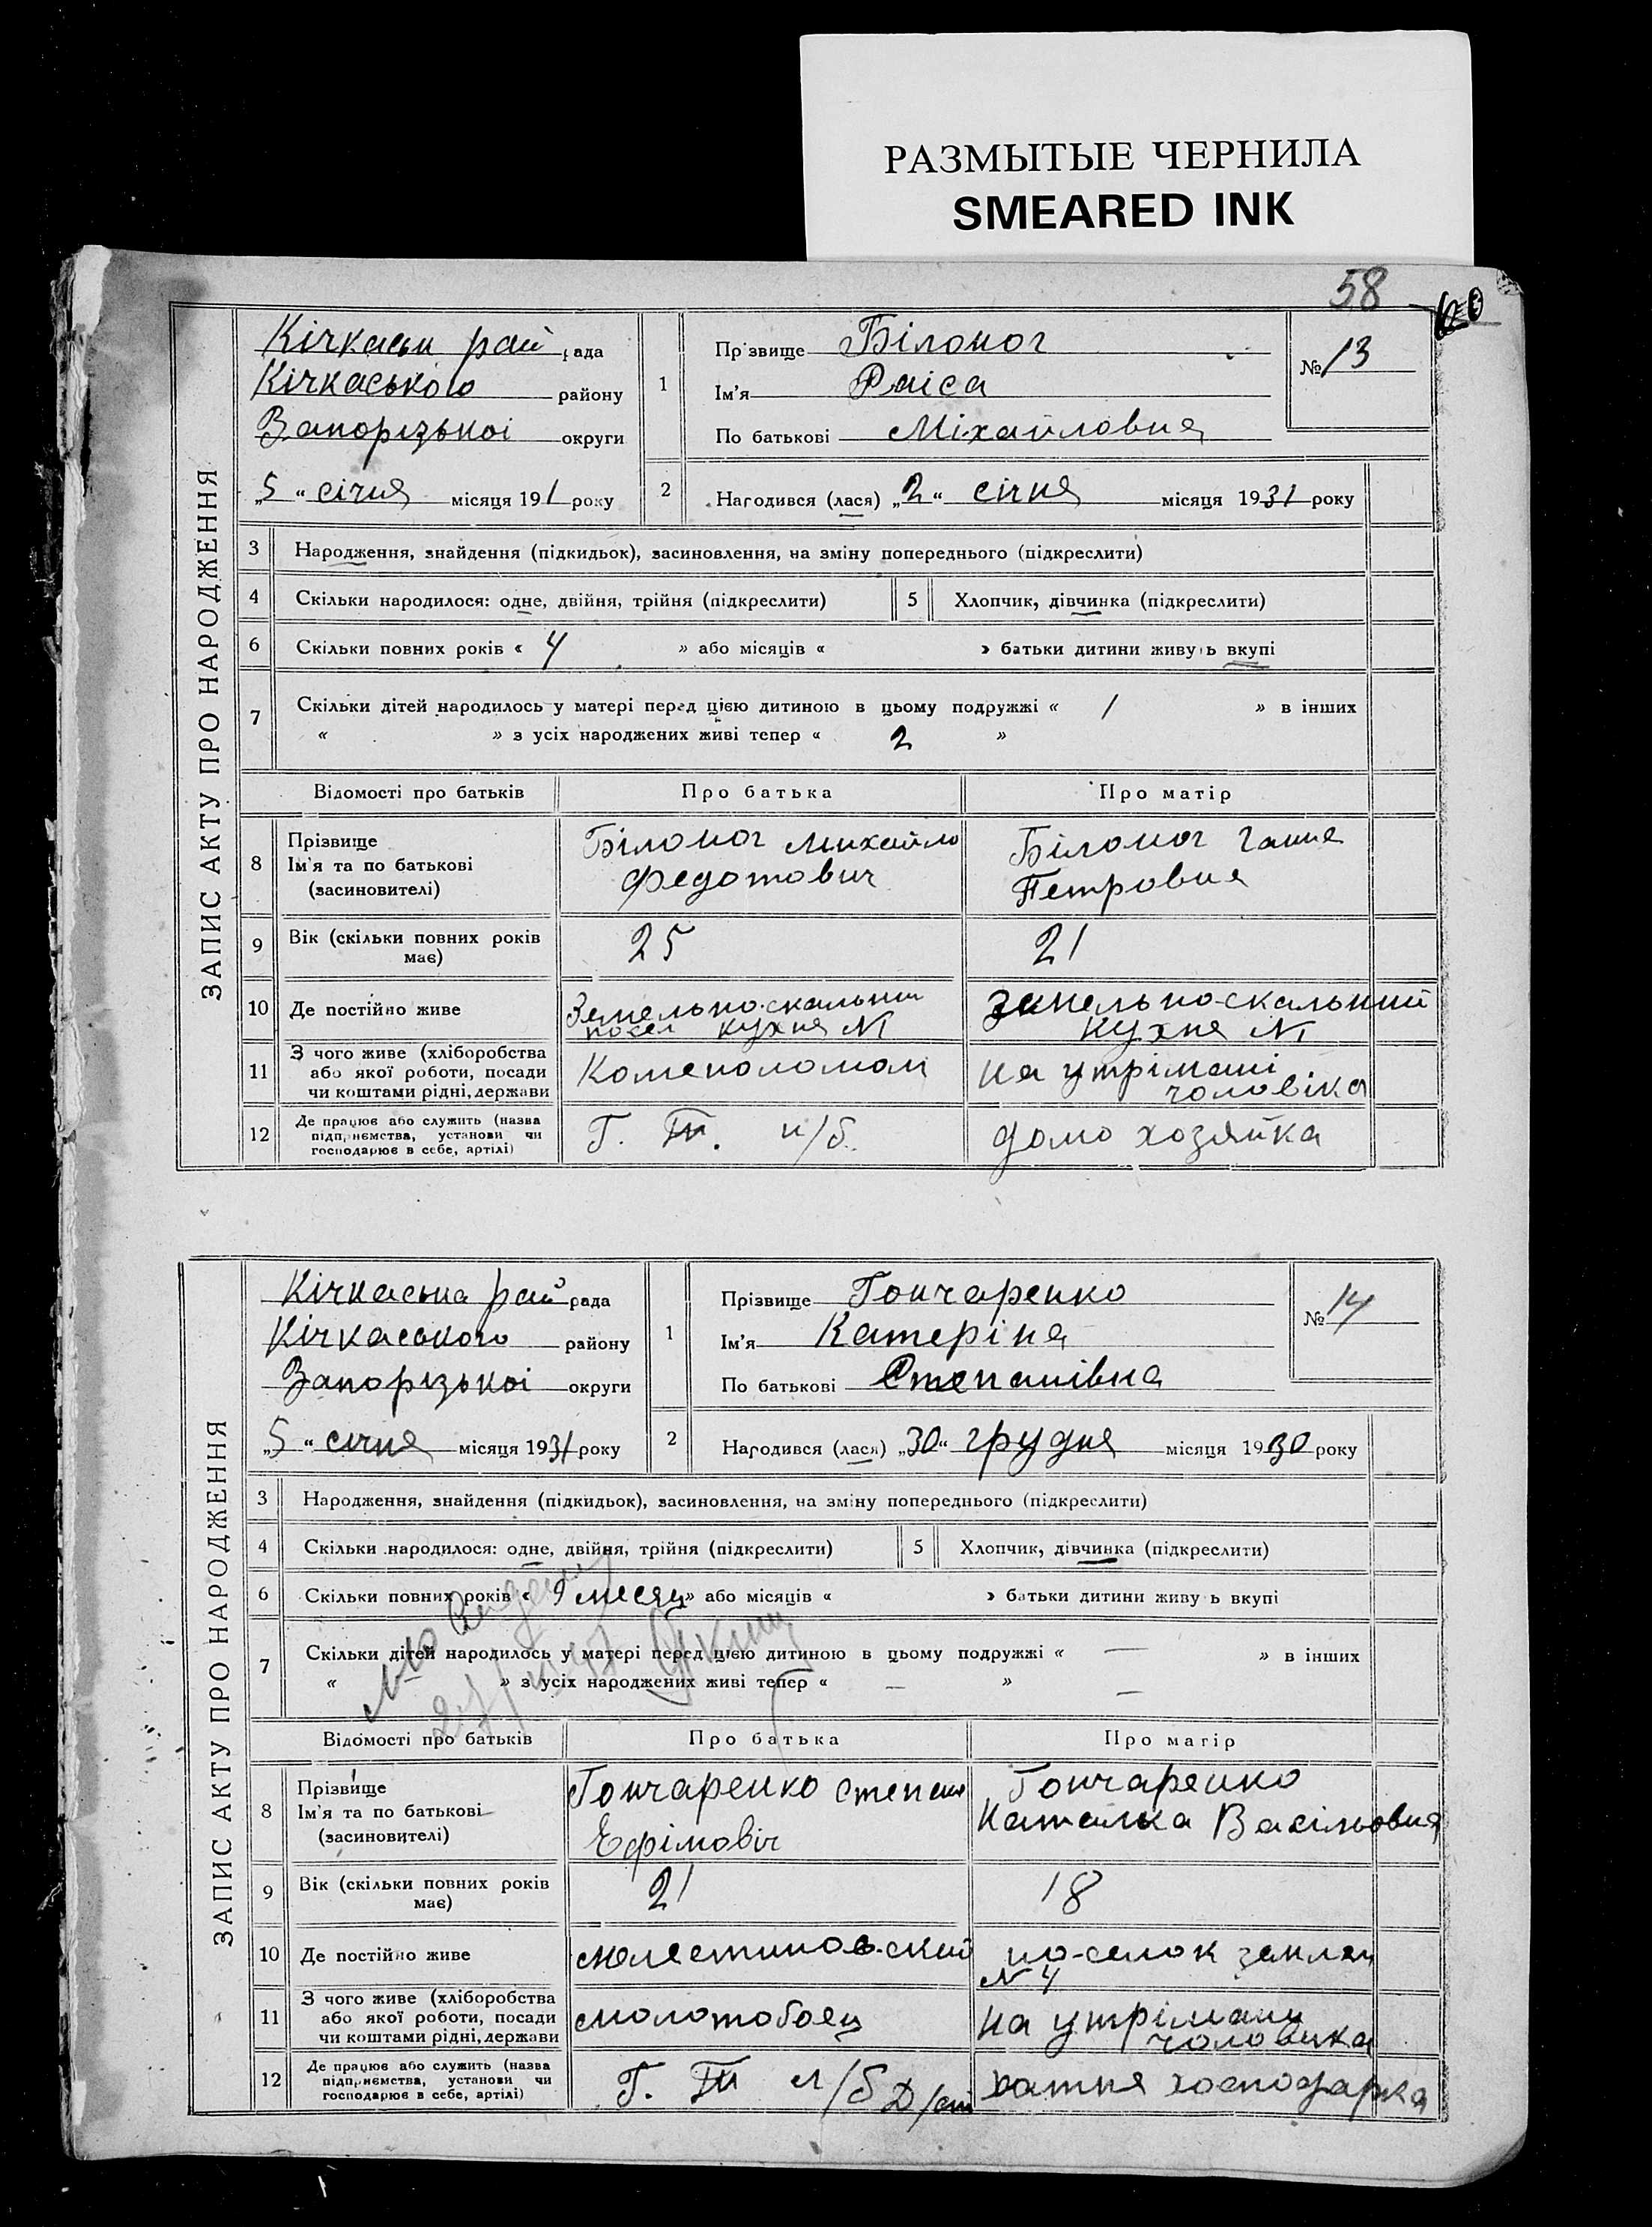 РАЗМЫТЫЕ ЧЕРНИЛА
SMEARED INK
58
60
ЗАПИС АКТУ ПРО НАРОДЖЕННЯ
Кічкаськ рай рада
Кічкаського району
Запорізькоі округи
„5“ січня місяця 191 року
1
Прізвище Білоног
Ім'я Раіса
По батькові Міхайловна
№ 13
2 Народився (лася) „2“ січня місяця 1931 року
3 Народження, знайдення (підкидьок), засиновлення, на зміну попереднього (підкреслити)
4 Скільки народилося: одне, двійня, трійня (підкреслити) 5 Хлопчик, дівчинка (підкреслити)
6 Скільки повних років « 4 » або місяців « » батьки дитини живуть вкупі
7 Скільки дітей народилось у матері перед цією дитиною в цьому подружжі « 1 » в інших
« » з усіх народжених живі тепер « 2 »
Відомості про батьків Про батька Про матір
8 Прізвище
Ім'я та по батькові
(засиновителі)
Білоног Михайло
Федотович
Білоног Ганна
Петровна
9 Вік (скільки повних років
має)
25
21
10 Де постійно живе
Земельно-скальний
посел кухня №1
Земельно-скальний
кухня №1
11 З чого живе (хліборобства
або якої роботи, посади
чи коштами рідні, держави
Каменоломом
на утрімані
чоловіка
12 Де працює або служить (назва
підприємства, установи чи
господарює в себе, артілі)
Г. Ш. п/б.
домо хозяйка
ЗАПИС АКТУ ПРО НАРОДЖЕННЯ
Кічкаська рай рада
Кічкаського району
Запорізькоі округи
„5“ січня місяця 1931 року
1
Прізвище Гончаренко
Ім'я Катеріна
По батькові Степанівна
№ 14
2 Народився (лася) „30“ грудня місяця 1930 року
3 Народження, знайдення (підкидьок), засиновлення, на зміну попереднього (підкреслити)
4 Скільки народилося: одне, двійня, трійня (підкреслити) 5 Хлопчик, дівчинка (підкреслити)
6 Скільки повних років « 9 месяц » або місяців « » батьки дитини живуть вкупі
7 Скільки дітей народилось у матері перед цією дитиною в цьому подружжі « — » в інших
« » з усіх народжених живі тепер « — » —
Відомості про батьків Про батька Про матір
8 Прізвище
Ім'я та по батькові
(засиновителі)
Гончаренко Степан
Ефімовіч
Гончаренко
Наталка Васільовна
9 Вік (скільки повних років
має)
21
18
10 Де постійно живе
по-селок землян
№ 4
11 З чого живе (хліборобства
або якої роботи, посади
чи коштами рідні, держави
молотобоец
на утрімани
чоловика
12 Де працює або служить (назва
підприємства, установи чи
господарює в себе, артілі)
Г. Ш л/б Д/ст
хатня господарка